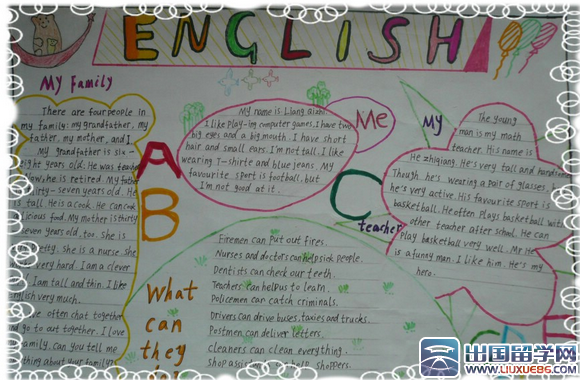 ENGLISH
My Family
There are four people in
my family: my grandfather, my
father, my mother, and I.
My grandfather is six-
eight years old. He was teacher
Now he is retired. My father
thirty-seven years old. He
is tall. He is a cook. He can cook
licious food. My mother is thirty
seven years old, too. she is
etty. She is a nurse. she
very hard. I am a clever
I am tall and thin. I like
nglish very much.
We often chat together
nd go to out together. I love
family. can you tell me
thing about your family?
A
B
C
My name is Liang
I like play-ing computer games. I have two
big eyes and a big mouth. I have short
hair and small ears. I'm not tall. I like
wearing T-shirte and blue jeans. My
favourite sport is football, but
I'm not good at it.
Me
My
teacher
The young
man is my math
teacher. His name is
He zhiqiang. He's very tall and handsome
Though he's wearing a pair of glasses,
he's very active. His favourise sport is
basketball. He often plays basketball with
other teacher after school. He can
Play basketball very well. Mr He
is a funny man. I like him. He's my
hero.
What
can
they
Firemen can put out fires.
Nurses and doctors can help sick people.
Dentists can check our teeth.
Teachers can help us to learn.
Policemen can catch criminals.
Drivers can drive buses, taxies and trucks.
Postmen can deliver letters.
cleaners can clean everything.
shop assis help shoppers.
出国留学网
WWW.LIUXUE86.COM